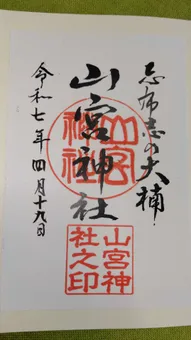 志布志の大楠
山宮神社
令和七年四月十九日
山宮神社
山宮神社之印